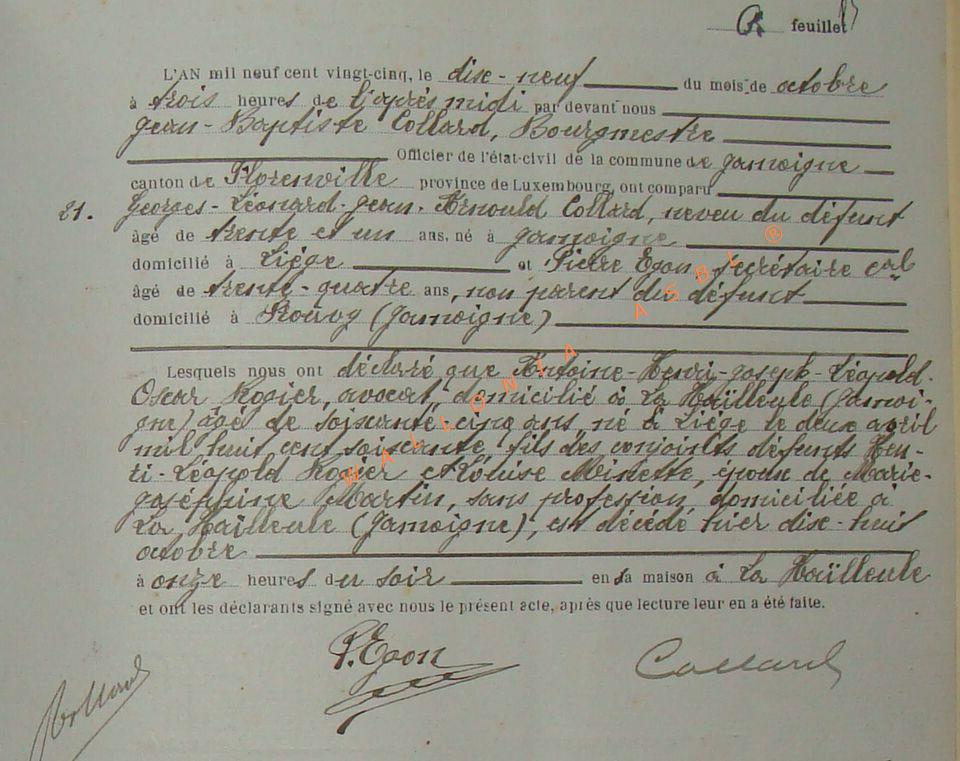 feuillet
L'AN mil neuf cent vingt-cinq, le dix-neuf du mois de octobre
à trois heures de l'après midi par devant nous
Jean-Baptiste Collard, Bourgmestre
Officier de l'état-civil de la commune de Jamoigne
canton de Florenville province de Luxembourg, ont comparu
21. Georges-Léonard-Jean-Arnould Collard, neveu du défunt
âgé de trente et un ans, né à Jamoigne
domicilié à Liége et Pierre Egon, secrétaire cal
âgé de trente-quatre ans, non parent du défunt
domicilié à Rouvy (Jamoigne)
Lesquels nous ont déclaré que Antoine-Henri-Joseph-Léopold-
Oscar Rogier, avocat, domicilié à La Haïlleule (Jamoi-
gne) âgé de soixante cinq ans, né à Liége le deux avril
mil huit cent soixante, fils des conjoints défunts Hen-
ri-Léopold Rogier et Louise Minette, époux de Marie-
Joséphine Martin, sans profession, domiciliée à
La Haïlleule (Jamoigne), est décédé hier dix-huit
octobre
à onze heures du soir en sa maison à La Haïlleule
et ont les déclarants signé avec nous le présent acte, après que lecture leur en a été faite.
P. Egon
Collard
Collard
WALLONIA ASBL ®